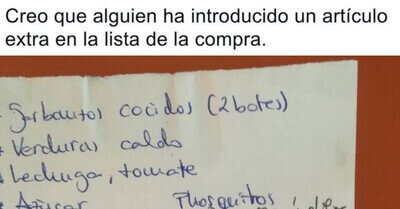 Creo que alguien ha introducido un artículo
extra en la lista de la compra.
Garbantos cocidos (2 botes)
Verduras caldo
Lechuga, tomate
Azúcar Phosquitos